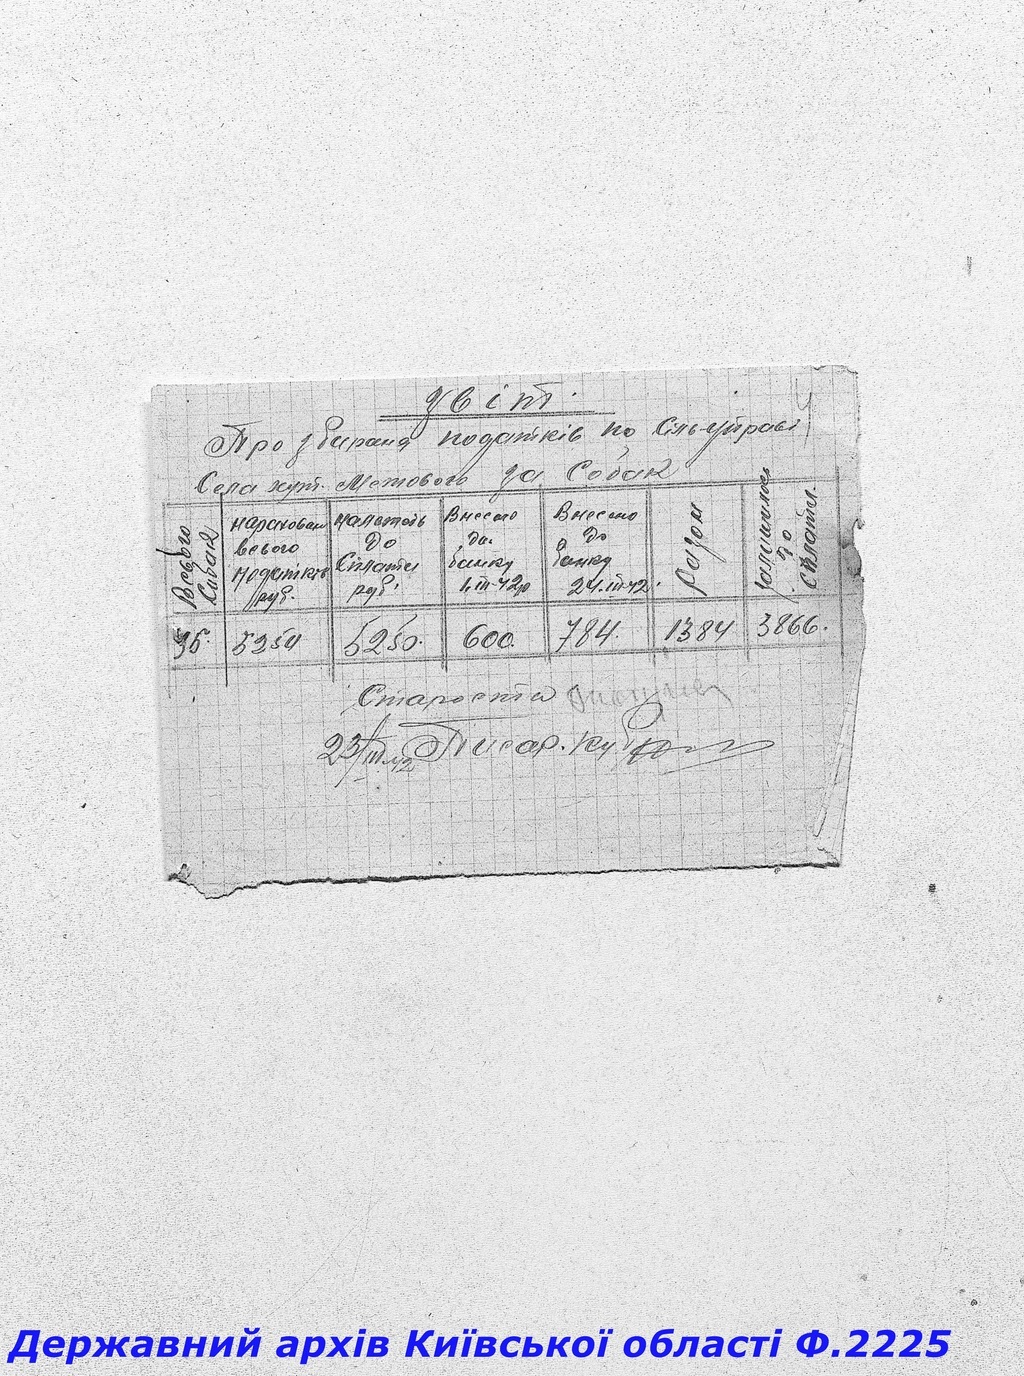 Звіт.
Про збирання податків по Сільуправі
Села хут. Мотового за Собак
Всього Собак
нараховано всього податків руб.
належить до Сплати руб.
Внесено до банку 1.III-42р
Внесено до банку 24.III-42.
Разом
залишилось до Сплати.
35. 5250 5250. 600. 784. 1384 3866.
Староста
23/III 42 Писар.
Державний архів Київської області Ф.2225